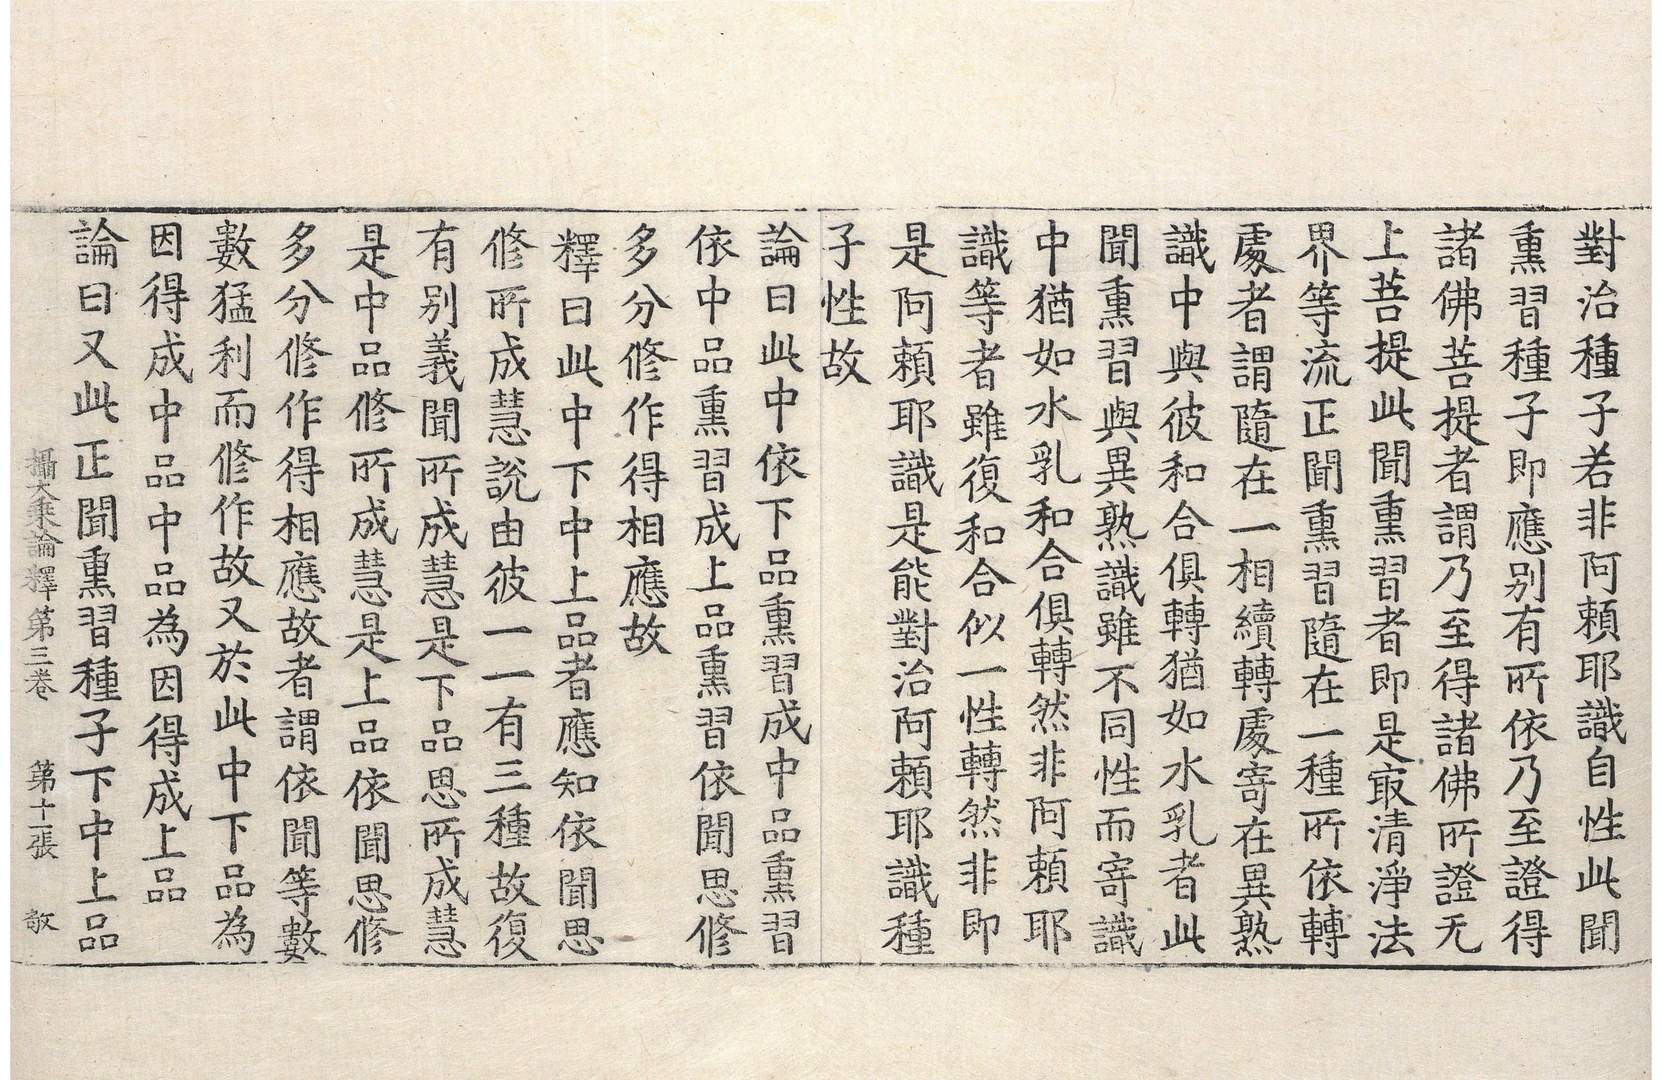 對治種子若非阿頼耶識自性此聞
熏習種子即應别有所依乃至證得
諸佛菩提者謂乃至得諸佛所證无
上菩提此聞熏習者即是㝡清淨法
界等流正聞熏習隨在一種所依轉
處者謂隨在一相續轉處寄在異熟
識中與彼和合俱轉猶如水乳者此
聞熏習與異熟識雖不同性而寄識
中猶如水乳和合俱轉然非阿頼耶
識等者雖復和合似一性轉然非即
是阿頼耶識是能對治阿頼耶識種
子性故
論曰此中依下品熏習成中品熏習
依中品熏習成上品熏習依聞思修
多分修作得相應故
釋曰此中下中上品者應知依聞思
修所成慧說由彼一一有三種故復
有别義聞所成慧是下品思所成慧
是中品修所成慧是上品依聞思修
多分修作得相應故者謂依聞等數
數猛利而修作故又於此中下品為
因得成中品中品為因得成上品
論曰又此正聞熏習種子下中上品
攝大乗論釋第三卷 第十一張 敬